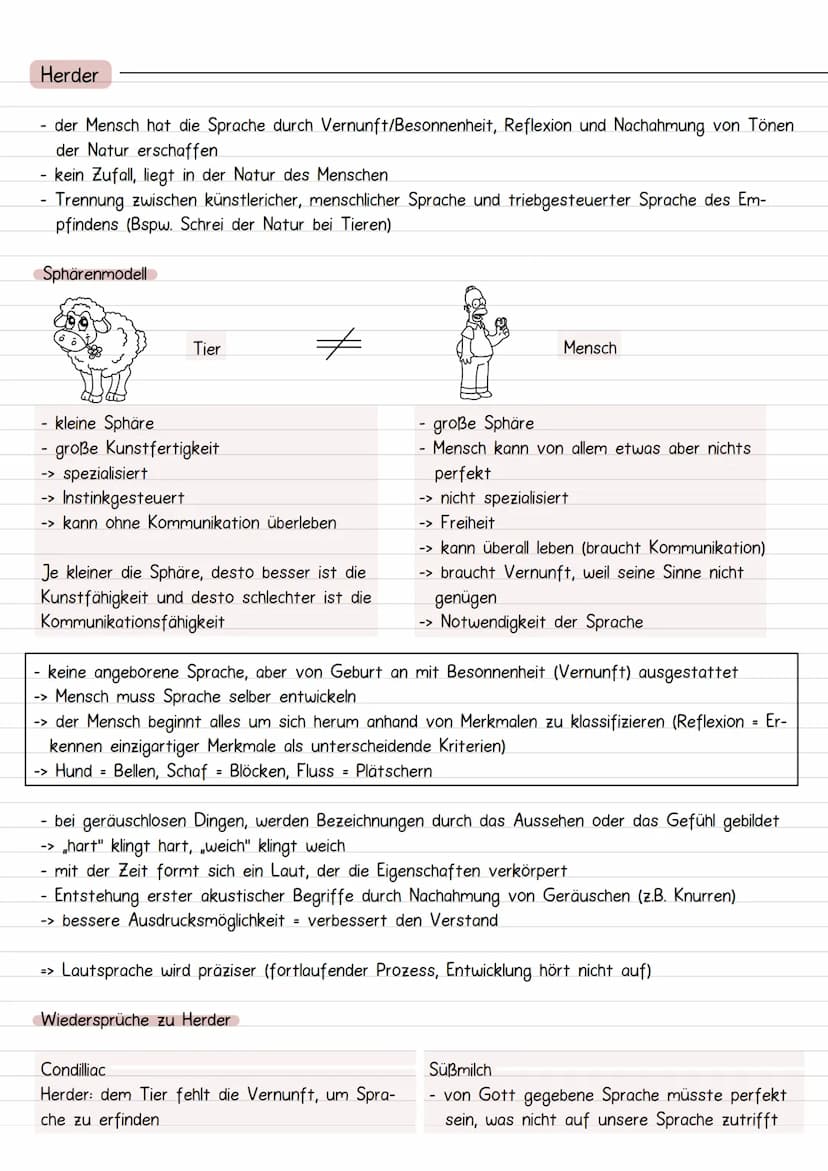 Herder
- der Mensch hat die Sprache durch Vernunft/Besonnenheit, Reflexion und Nachahmung von Tönen
der Natur erschaffen
- kein Zufall, liegt in der Natur des Menschen
- Trennung zwischen künstlericher, menschlicher Sprache und triebgesteuerter Sprache des Em-
pfindens (Bspw. Schrei der Natur bei Tieren)
Sphärenmodell
Tier
≠
Mensch
- kleine Sphäre
- große Kunstfertigkeit
-> spezialisiert
-> Instinkgesteuert
-> kann ohne Kommunikation überleben
Je kleiner die Sphäre, desto besser ist die
Kunstfähigkeit und desto schlechter ist die
Kommunikationsfähigkeit
- große Sphäre
- Mensch kann von allem etwas aber nichts
perfekt
-> nicht spezialisiert
-> Freiheit
-> kann überall leben (braucht Kommunikation)
-> braucht Vernunft, weil seine Sinne nicht
genügen
-> Notwendigkeit der Sprache
- keine angeborene Sprache, aber von Geburt an mit Besonnenheit (Vernunft) ausgestattet
-> Mensch muss Sprache selber entwickeln
-> der Mensch beginnt alles um sich herum anhand von Merkmalen zu klassifizieren (Reflexion = Er-
kennen einzigartiger Merkmale als unterscheidende Kriterien)
-> Hund = Bellen, Schaf = Blöcken, Fluss = Plätschern
- bei geräuschlosen Dingen, werden Bezeichnungen durch das Aussehen oder das Gefühl gebildet
-> „hart" klingt hart, „weich" klingt weich
- mit der Zeit formt sich ein Laut, der die Eigenschaften verkörpert
- Entstehung erster akustischer Begriffe durch Nachahmung von Geräuschen (z.B. Knurren)
-> bessere Ausdrucksmöglichkeit = verbessert den Verstand
=> Lautsprache wird präziser (fortlaufender Prozess, Entwicklung hört nicht auf)
Wiedersprüche zu Herder
Condilliac
Herder: dem Tier fehlt die Vernunft, um Spra-
che zu erfinden
Süßmilch
- von Gott gegebene Sprache müsste perfekt
sein, was nicht auf unsere Sprache zutrifft